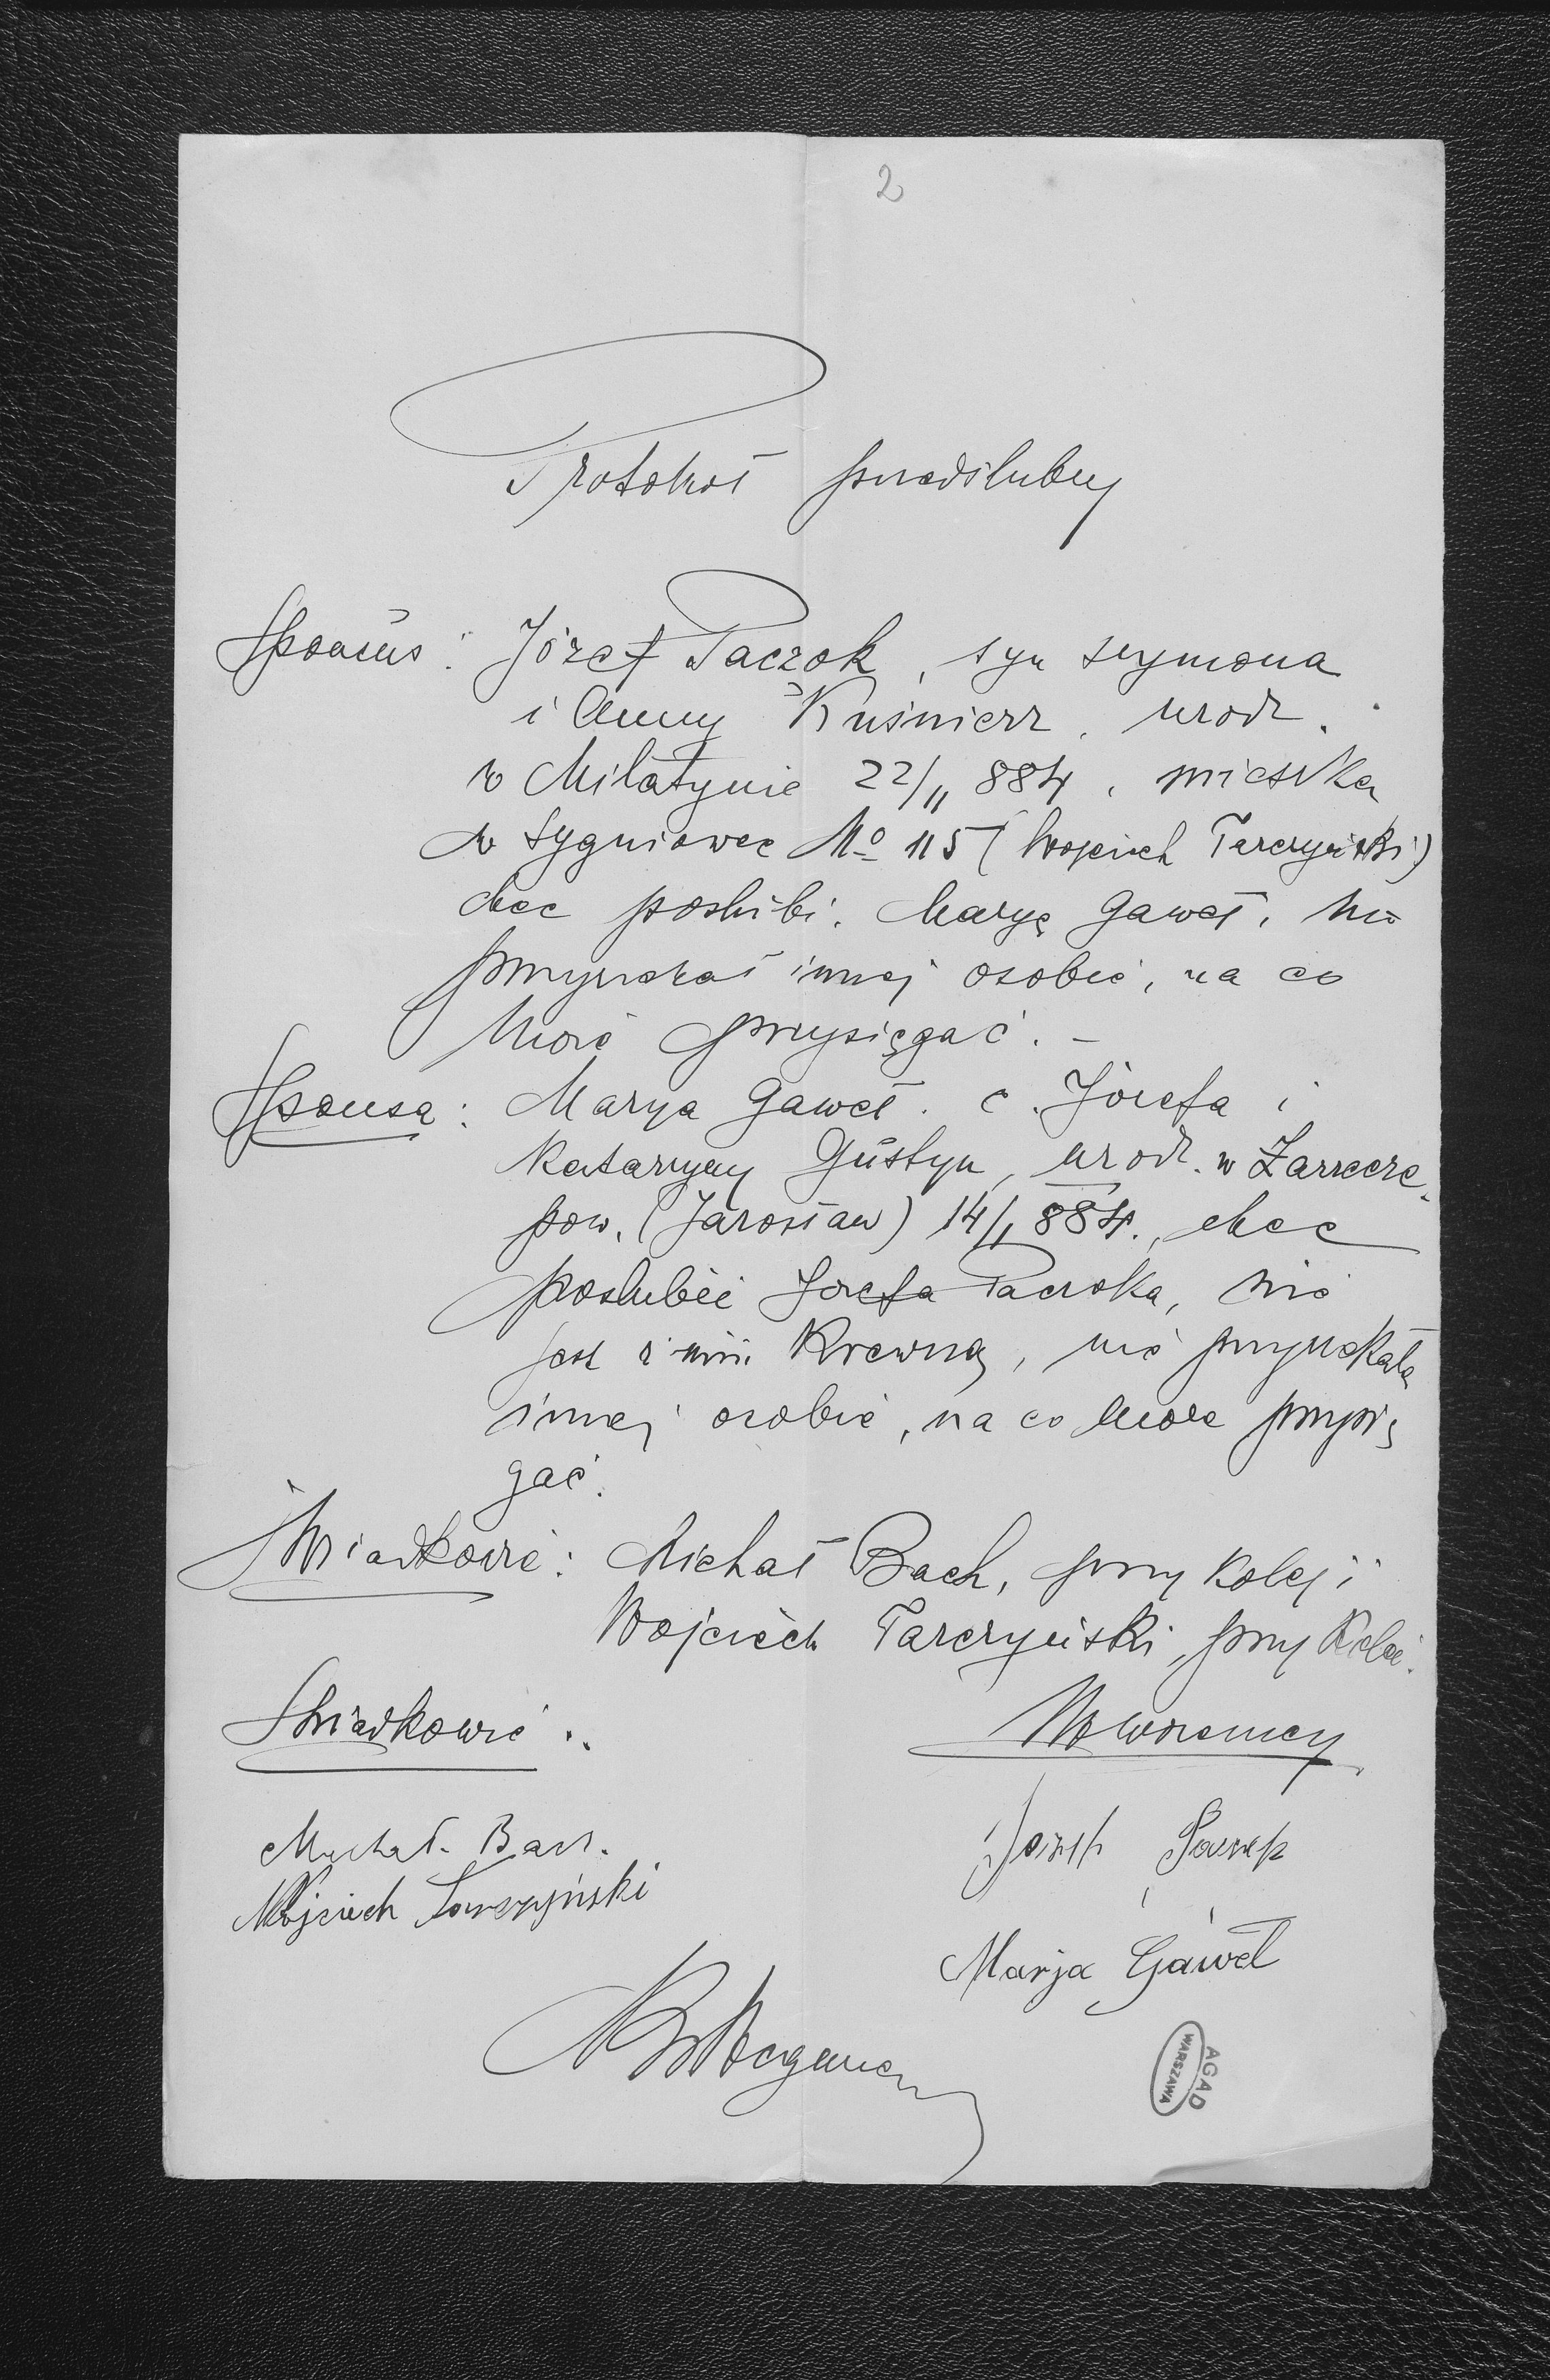 2
Protokoł przedślubny
Sponsus: Józef Paczok, syn Szymona
i Anny Kuśnierz, urodz.
w Milatynie 22/11 884, mieszka
w Sygniowce No 115 (Wojciech Tarczyński)
chce poślubi. Maryę Gaweł, nie
przyrzekał innej osobie, na co
może przysięgać. –
Sponsa: Marya Gaweł. c. Józefa i
Katarzyny Gustyn, urodz. w Zarzecze
pow. (Jarosław) 14/1 884., chce
poślubić Józefa Paczoka, nie
jest z nim krewną, nie przyrzekała
innej osobie, na co może przysię
gać.
Świadkowie: Michał Bach, przy kolej i
Wojciech Tarczyński, przy kolei.
Świadkowie: Nowożeńcy
Józef
Wojciech Tarczyński
Marja Gaweł
AGAD
WARSZAWA